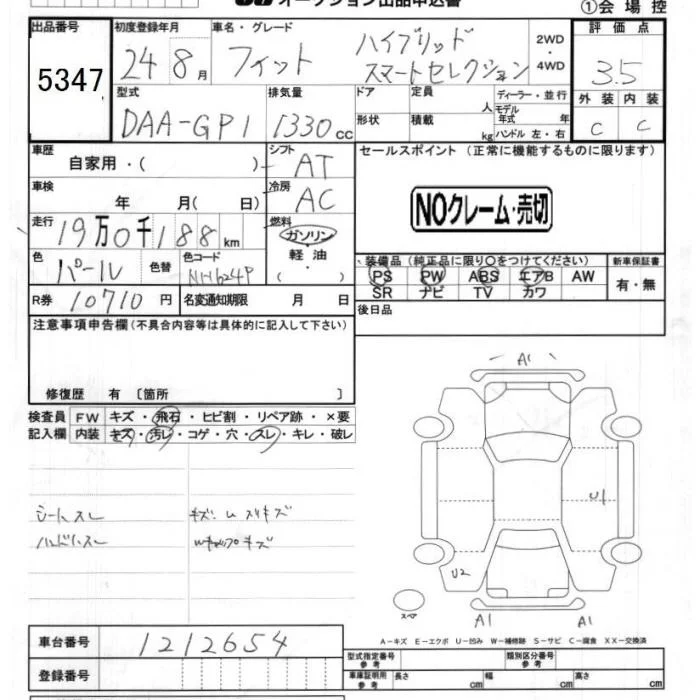 オークション出品申込書
①会場控
出品番号 初度登録年月 車名・グレード 評価点
5347 24 8月 フィット ハイブリッド スマートセレクション 2WD・4WD 3.5
型式 排気量 ドア 定員 人 ディーラー・並行 外装 内装
DAA-GP1 1330cc 形状 積載 kg モデル年式 年 ハンドル 左・右 C C
車歴 自家用・( ) シフト AT セールスポイント (正常に機能するものに限ります)
車検 年 月( 日) 冷房 AC
NOクレーム・売切
走行 19万0千188km 燃料 ガソリン・軽油・( )
色 パール 色替 色コード NH624P
装備品(純正品に限り○をつけてください) 新車保証書
PS PW ABS エアB AW 有・無
SR ナビ TV カワ
R券 10710円 名変通知期限 月 日 後日品
注意事項申告欄(不具合内容等は具体的に記入して下さい)
修復歴 有 〔箇所 〕
検査員 FW キズ・飛石・ヒビ割・リペア跡・×要
記入欄 内装 キズ・汚レ・コゲ・穴・スレ・キレ・破レ
シートスレ
ハンドルスレ
A1
U1
U2
スペア
A1 A1
A-キズ E-エクボ U-凹み W-補修跡 S-サビ C-腐食 XX-交換済
車台番号 1212654
登録番号
型式指定番号 参考 類別区分番号 参考
車庫証明用 参考 長さ cm 幅 cm 高さ cm